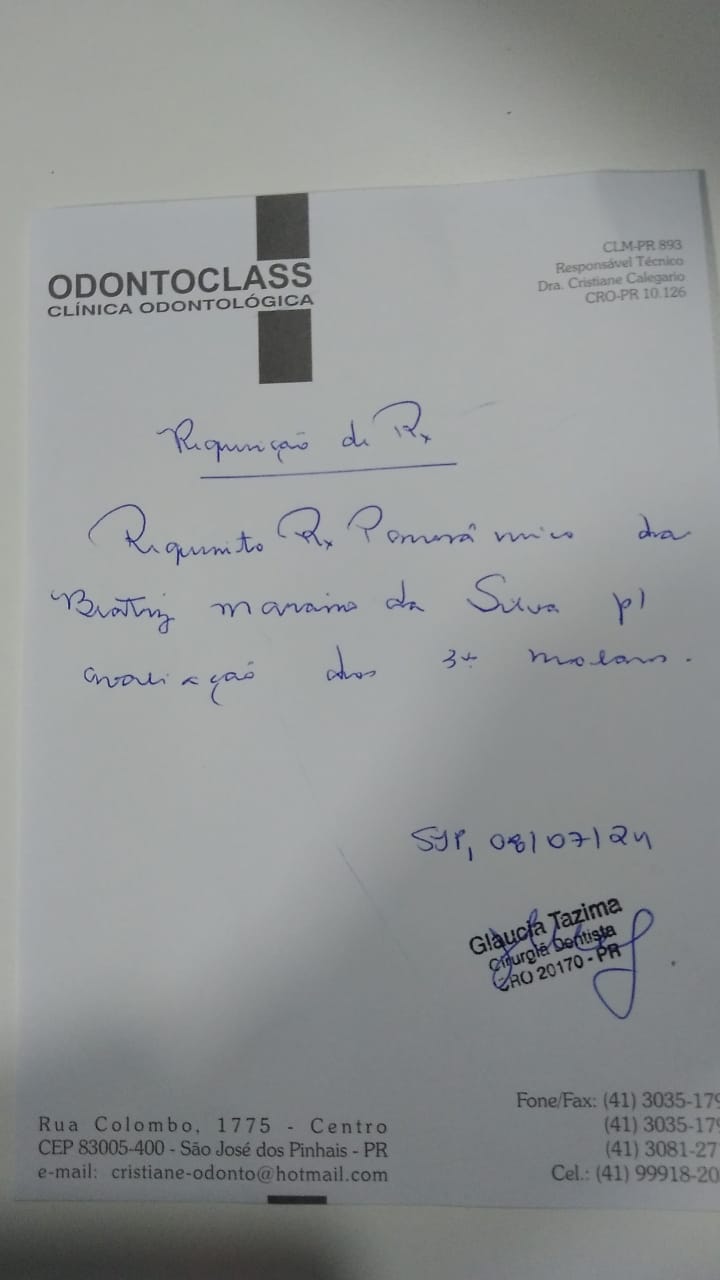 ODONTOCLASS
CLÍNICA ODONTOLÓGICA
CLM-PR 893
Responsável Técnico
Dra. Cristiane Calegario
CRO-PR 10.126
Requisição de Rx
Requisito Rx Panorâmico da
Beatriz da Silva p/
avaliação dos 3os molares.
SJP, 08/07/24
Glaucia Tazima
Cirurgiã Dentista
CRO 20170 - PR
Rua Colombo, 1775 - Centro
CEP 83005-400 - São José dos Pinhais - PR
e-mail: cristiane-odonto@hotmail.com
Fone/Fax: (41) 3035-179
(41) 3035-179
(41) 3081-27
Cel.: (41) 99918-20